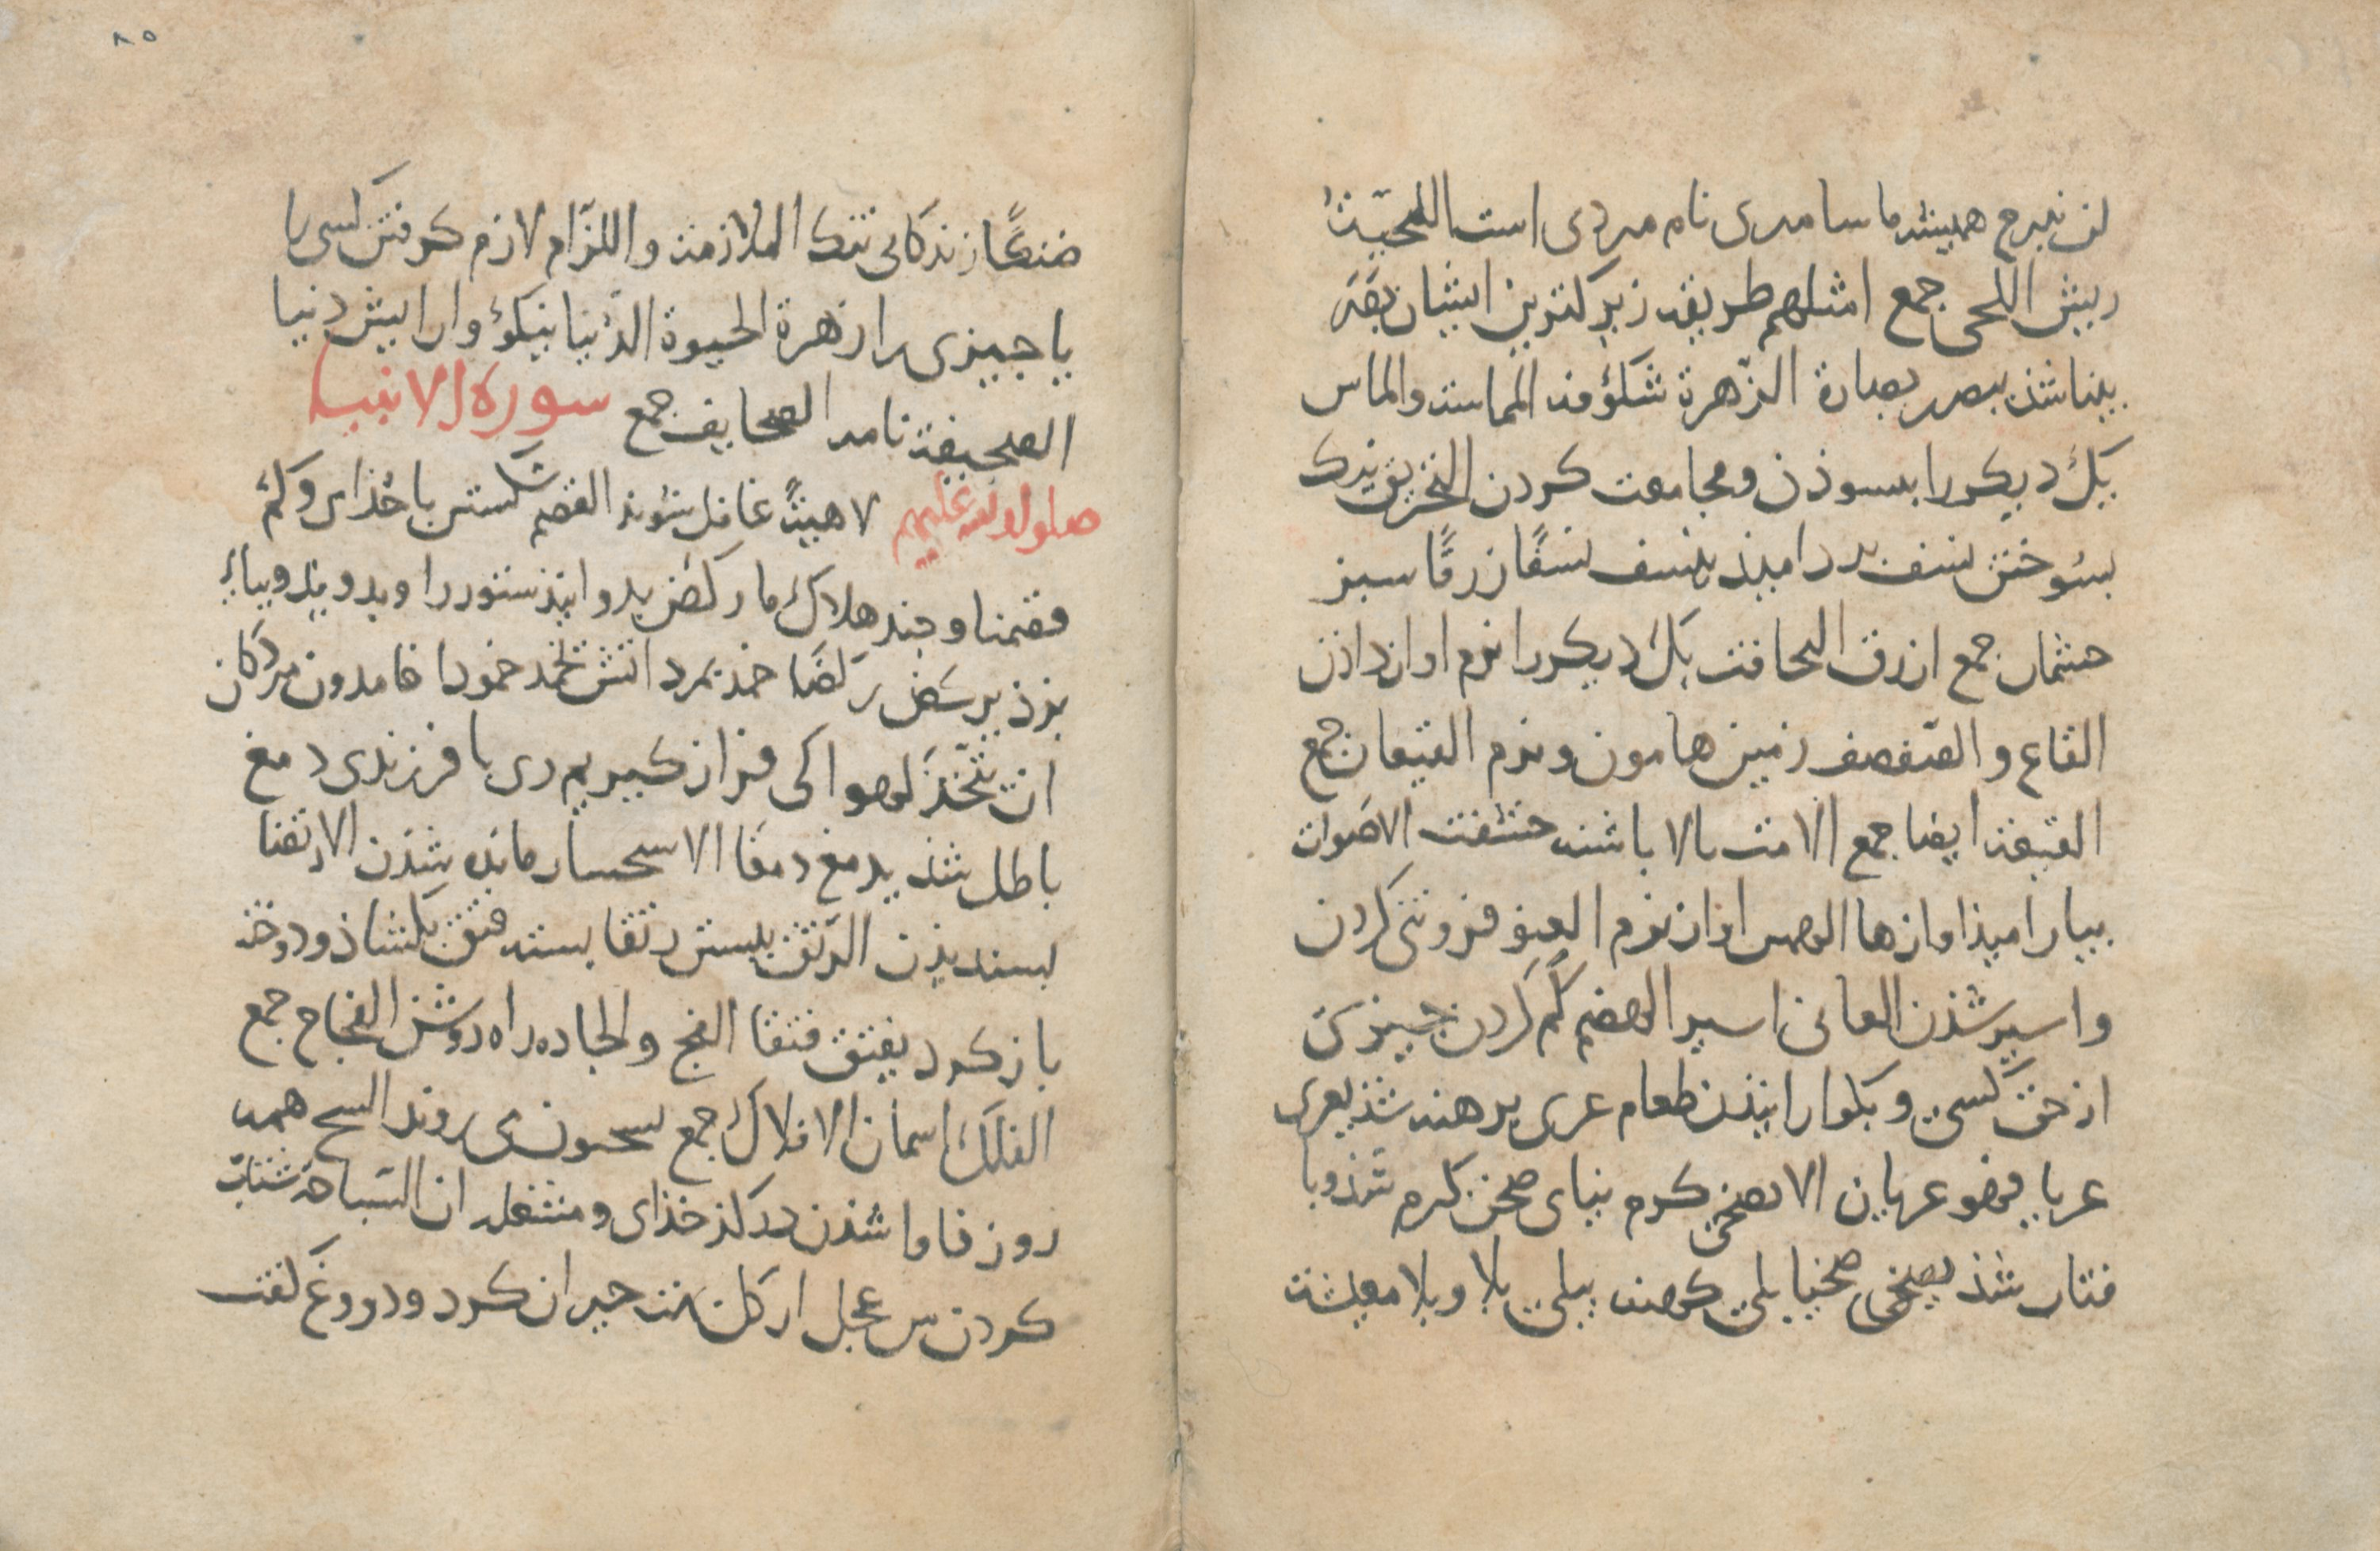 لن نبرح همیشه ما سامری نام مردی است اللحیة
ریش اللحی جمع امثلهم طریقه زیرکترین ایشان بقه
بینا شذ یبصر بصارة الزهرة شکوفه المماسة والماس
یک دیکر را بسوذن و مجامعت کردن التحریق نیک
بسوختن نسف بر دامیذ ینسف نسفا زرقا سبز
جشمان جمع ازرق التخافت یک دیکر را نرم اواز داذن
القاع و الصفصف زمین هامون و نرم القیعان جمع
القیعة ایضا جمع الامت بالا باشنه خشعت الاصوات
بیارامیذ اوازها الهمس اواز نرم العنو فروتنی کردن
و اسیر شذن العانی اسیر الهضم کم کردن جیزی
از حق کسی و بکوارانیذن طعام عری برهنه شذ یعری
عریا فهو عریان الاتضحی کرم نیای ضحی کرم شذ ویا
فتاب شذ یضحی ضحیا یبلی کهنه یبلی بلا و بلا معیشة
۸۵
ضنکا زندکانی تنک الملازمة واللزام لازم کرفتن کسی را
یا جیزی را زهرة الحیوة الدنیا نیکوی و ارایش دنیا
الصحیفة نامه الصحایف جمع سورة الانبیا
صلوات الله علیهم لاهیة غافل شونده القصم شکستن با خذای و کم
قصمنا و جند هلاک ما رکض بدوانیذ ستور را و بدویذ و بپای
بزذ یرکض رکضا خمد بمرد اتش یخمد خمودا خامدون مردکان
ان نتخذ لهوا کی فراز کیریم زی یا فرزندی دمغ
باطل شذ یدمغ دمغا الاستحسار مانده شذن الارتضا
بسندیذن الرتق ببستن رتقا بسته فتق بکشاذ و دوخته
باز کرد یفتق فتقا الفج والجاده راه روشن الفجاج جمع
الفلک اسمان الافلاک جمع یسبحون می روند السبح همه
روز فاوا شذن در کذخذای و مشغله ان السباحة شناب
کردن من عجل از کل بهت حیران کرد و دروغ کفت